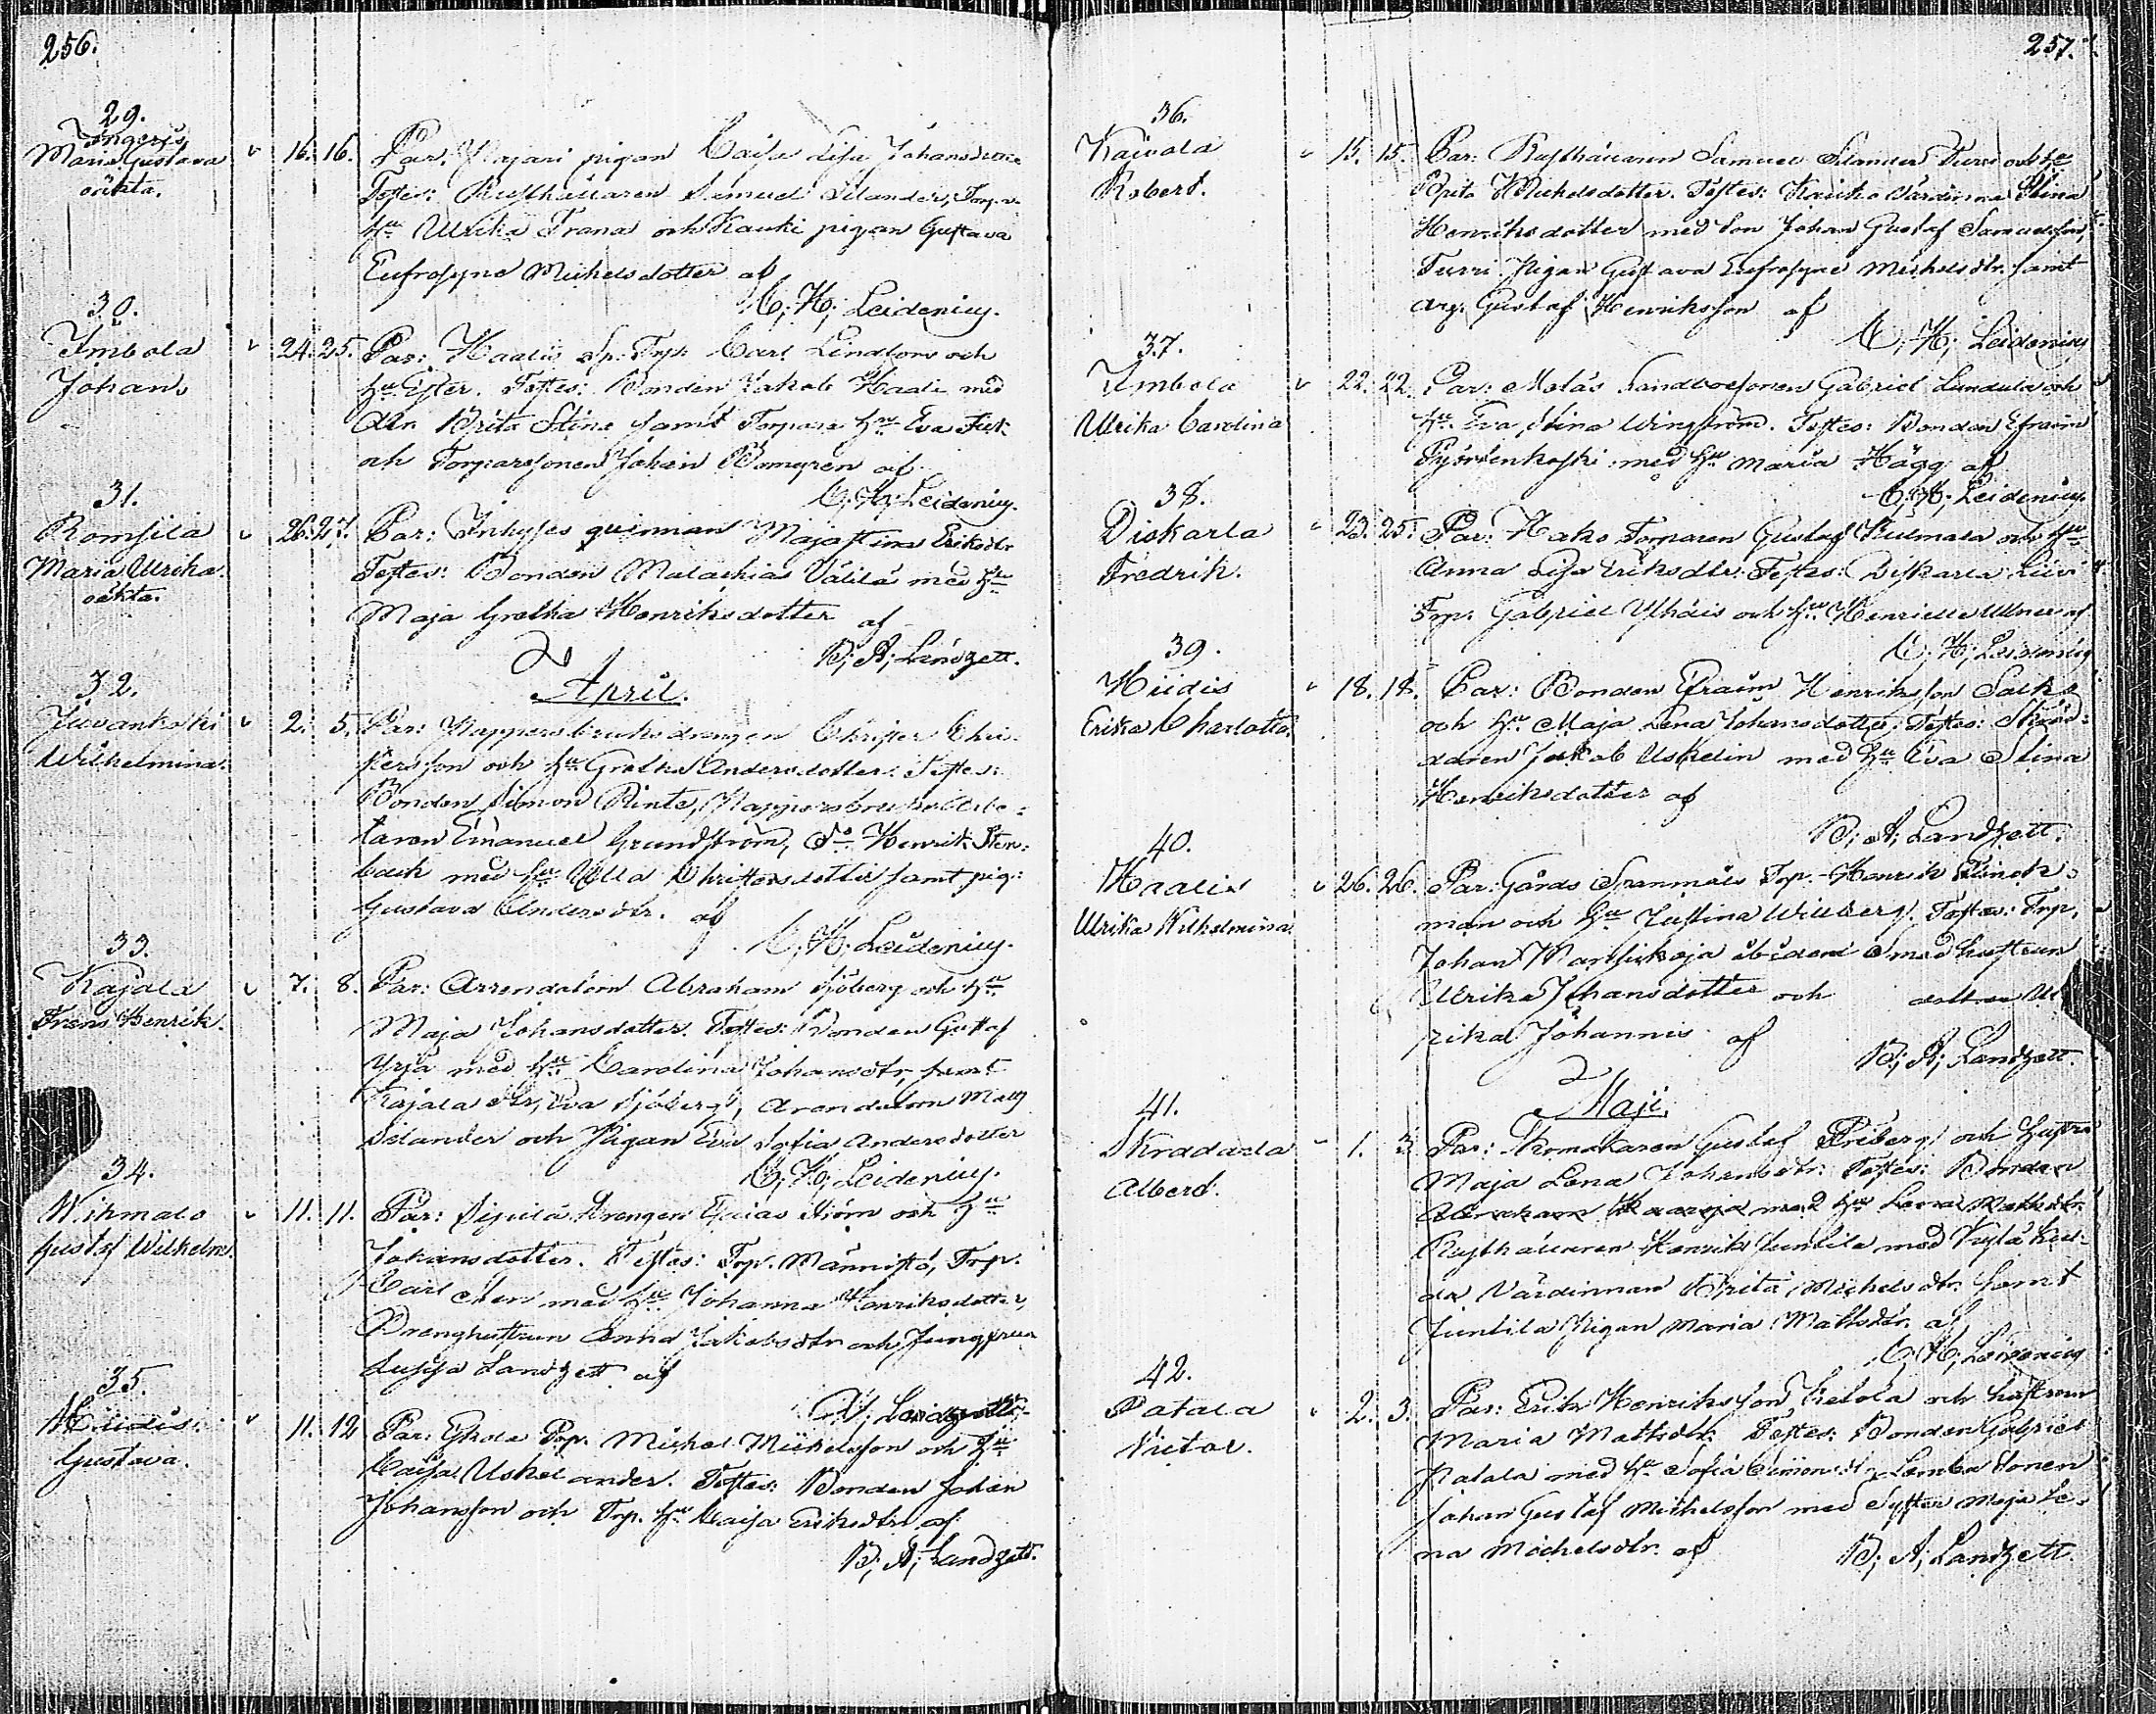 256.
29.
Ingeris
Maria Gustava
oäkta.
16. 16. Par. Pajari pigan Caisa Lisa Johansdotter
Testes: Rusthållaren Samuel Silander, Torp.
hu Ulrika Trana och Kauki pigan Gustava
Eufrosyne Michelsdotter af
C; H; Leidenius.
30.
Imbola
Johan
24. 25. Par: Haalis Sp. Torp. Carl Lindfors och
hu Ester. Testes: Bonden Jakob Haali med
dtn Brita Stina samt Torpare hu Eva
och Torparesonen Johan Blomgren af
C; H; Leidenius.
31.
Romsila
Maria Ulrika
oäkta.
26. 27. Par: qvinnan Maja Stina Eriksdtr
Testes: Bonden Malachias Välilä med hu
Maja Gretha Henriksdotter af
B; A; Landzett.
April.
32.
Juvankoski
Wilhelmina.
2. 5. Par: Kappersbruksdrengen Christer Chri-
stersson och hu Gretha Andersdotter. Testes:
Bonden Simon Rinte, Kappersbruksarbe-
taren Emanuel Grundström, do Henrik Sten-
back med hu Ulla Christersdotter samt pig:
Gustava Andersdtr. af
C; H; Leidenius.
33.
Kajala
Frans Henrik.
7. 8. Par: Arrendatorn Abraham Sjöberg och hu
Maja Johansdotter. Testes: Bonden Gustaf
Yrjä med hu Carolina Johansdtr, samt
Kajala dtr, Eva Sjöberg, Arendatorn Matts
Silander och Pigan Eva Sofia Andersdotter
C; H; Leidenius.
34.
Wihmalo
Gustaf Wilhelm.
11. 11. Par: Sipilä Drengen Esaias Ström och hu
Johansdotter. Testes: Torp. Männistö, Torp.
Carl med hu Johanna Henriksdotter,
Drenghustrun Anna Jakobsdtr och Jungfrun
Landzett af
A; Landzett.
35.
Hiidis.
Gustava.
11. 12 Par: Ehola Torp. Michel Michelsson och hu
Caisa Uskelander. Testes: Bonden Johan
Johansson och Torp. hu Caisa Eriksdtr af
B; A; Landzett.
257.
36.
Kaivola
Robert.
15. 15. Par: Rusthållaren Samuel Silander Turri och hu
Brita Michelsdotter. Testes: Kauko Värdinna Stina
Henriksdotter med Son Johan Gustaf Samuelsson,
Turri Pigan Gustava Eufrosyne Michelsdtr. samt
drg. Gustaf Henriksson af
C; H; Leidenius
37.
Imbola
Ulrika Carolina
22. 22. Par: Matäs Landboesonen Gabriel Lundula och
hu Eva Stina Wingström. Testes: Bonden Efraim
Pyörönkoski med hu Maria Hägg af
C; H; Leidenius.
38.
Diskarla
Fredrik.
23. 25. Par: Hako Torparen Gustaf Kulmala och hu
Anna Lisa Eriksdtr. Testes: Diskarla
Torp. Gabriel Ylhäis och hu Henriette Ulrica af
C; H; Leidenius
39.
Hiidis
Erika Charlotta.
18. 18. Par: Bonden Efraim Henriksson Salko
och hu Maja Lena Johansdotter. Testes: Skräd-
daren Jakob Uskelin med hu Eva Stina
Henriksdotter af
B; A; Landzett.
40.
Haalis
Ulrika Wilhelmina.
26. 26. Par: Gårds Spanmåls Torp. Henrik Klinck-
man och hu Justina Willberg. Testes: Torp.
Johan Marsikoja Smed hustrun
Ulrika Johansdotter och dottren Ul
rika Johannis af
B; A; Landzett.
Maji.
41.
Skradarla
Albert.
1. 3. Par: Skomakaren Gustaf Friberg och hustru
Maja Lena Johansdtr: Testes: Bonden
Abraham Haarja med hu Lena Mattsdtr.
Rusthållaren Henrik Juntila med Kylä
da Värdinnan Brita Michelsdtr. samt
Juntila Pigan Maria Mattsdtr. af
C; H; Leidenius
42.
Patala
Victor.
2. 3. Par: Erik Henriksson Ketola och hustrun
Maria Mattsdtr. Testes: Bonden Gabriel
Patala med hu Sofia Simonsdtr, Lemba Sonen
Johan Gustaf Michelsson med Syster Maja Le-
na Michelsdtr. af
B; A; Landzett.